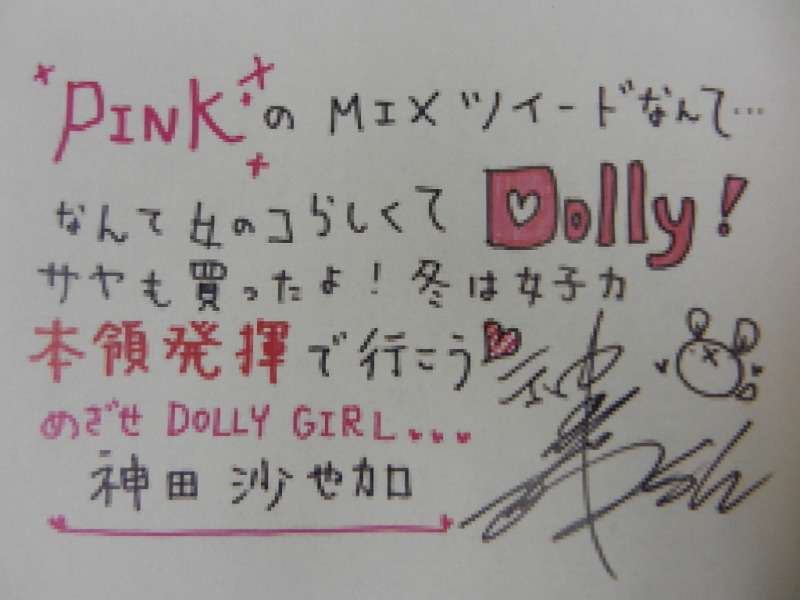 PINKのMIXツイードなんて…
なんて女のコらしくてDolly!
サヤも買ったよ!冬は女子力
本領発揮で行こう
めざせ DOLLY GIRL...
神田沙也加